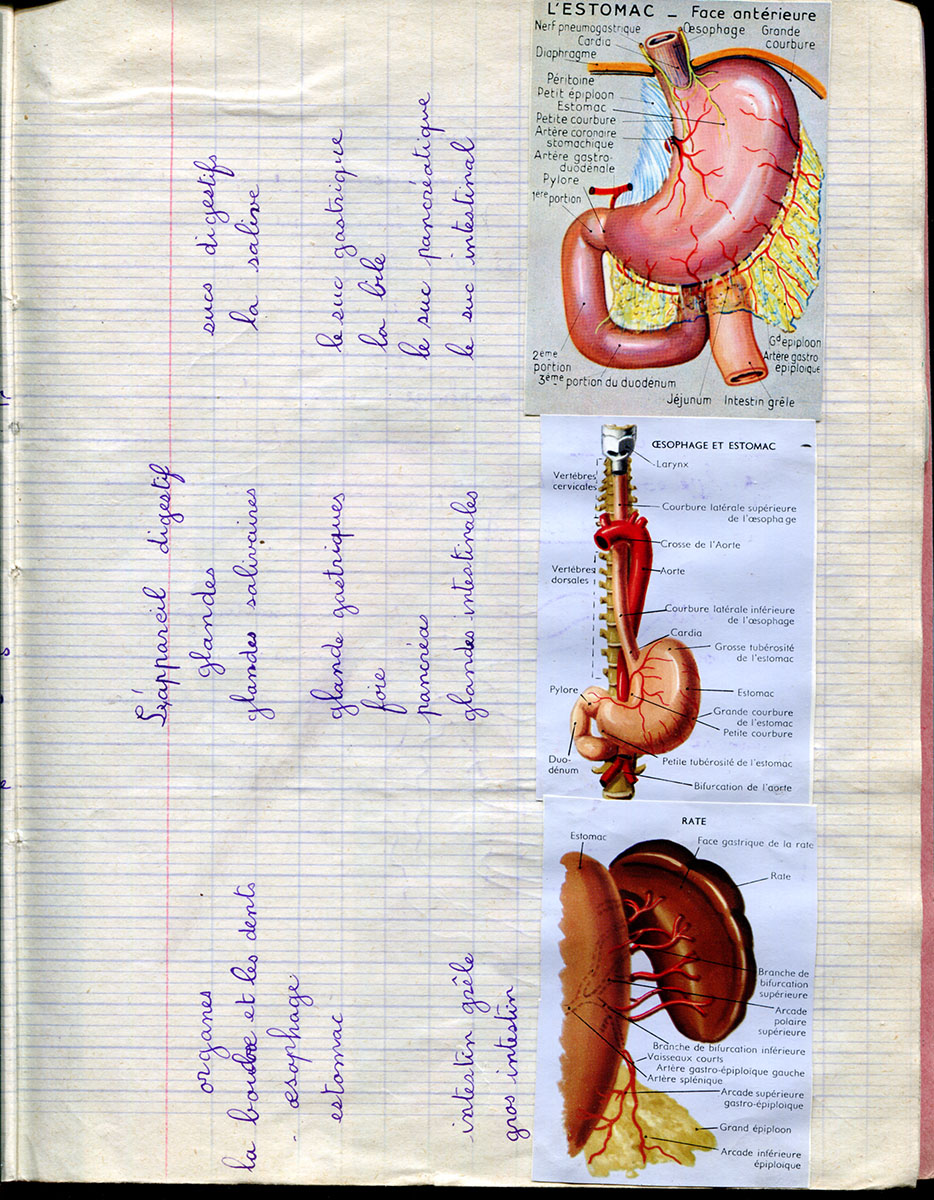 L'appareil digestif
organes glandes sucs digestifs
la bouche et les dents glandes salivaires la salive
œsophage
estomac glande gastriques le suc gastrique
foie la bile
pancréas le suc pancréatique
intestin grêle glandes intestinales le suc intestinal
gros intestin
L'ESTOMAC _ Face antérieure
Nerf pneumogastrique
Œsophage
Grande courbure
Cardia
Diaphragme
Péritoine
Petit épiploon
Estomac
Petite courbure
Artère coronaire
stomachique
Artère gastro-
duodénale
Pylore
1ère portion
2ème
portion
3ème portion du duodenum
Gd epiploon
Artère gastro
épiploique
Jéjunum
Intestin grêle
ŒSOPHAGE ET ESTOMAC
Larynx
Vertèbres
cervicales
Courbure latérale supérieure
de l'œsophage
Crosse de l'Aorte
Vertèbres
dorsales
Aorte
Courbure latérale inférieure
de l'œsophage
Cardia
Grosse tubérosité
de l'estomac
Pylore
Estomac
Grande courbure
de l'estomac
Petite courbure
Duo-
dénum
Petite tubérosité de l'estomac
Bifurcation de l'aorte
RATE
Estomac
Face gastrique de la rate
Rate
Branche de
bifurcation
supérieure
Arcade
polaire
supérieure
Branche de bifurcation inférieure
Vaisseaux courts
Artère gastro-épiploïque gauche
Artère splénique
Arcade supérieure
gastro-épiploïque
Grand épiploon
Arcade inférieure
épiploïque